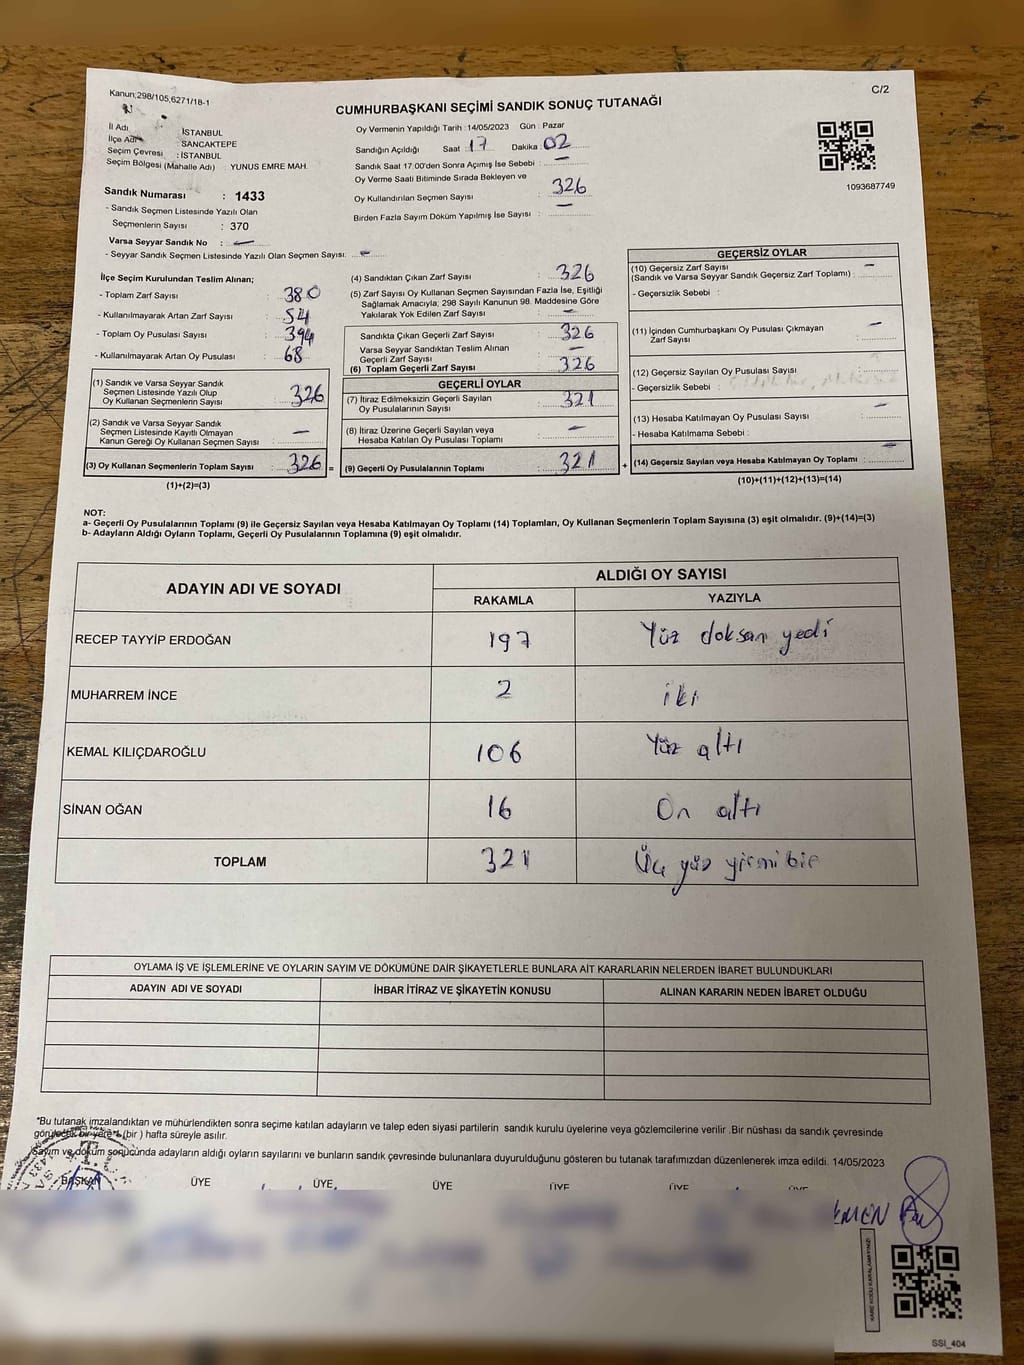 Kanun;298/105,6271/18-1
C/2
CUMHURBAŞKANI SEÇİMİ SANDIK SONUÇ TUTANAĞI
İl Adı : İSTANBUL
İlçe Adı : SANCAKTEPE
Seçim Çevresi : İSTANBUL
Seçim Bölgesi (Mahalle Adı) : YUNUS EMRE MAH.
Sandık Numarası : 1433
- Sandık Seçmen Listesinde Yazılı Olan
Seçmenlerin Sayısı : 370
Varsa Seyyar Sandık No : —
- Seyyar Sandık Seçmen Listesinde Yazılı Olan Seçmen Sayısı: —
Oy Vermenin Yapıldığı Tarih :14/05/2023 Gün : Pazar
Sandığın Açıldığı Saat 17 Dakika 02
Sandık Saat 17.00'den Sonra Açımış İse Sebebi : —
Oy Verme Saati Bitiminde Sırada Bekleyen ve
Oy Kullandırılan Seçmen Sayısı : 326
Birden Fazla Sayım Döküm Yapılmış İse Sayısı : —
1093687749
İlçe Seçim Kurulundan Teslim Alınan;
- Toplam Zarf Sayısı : 380
- Kullanılmayarak Artan Zarf Sayısı : 54
- Toplam Oy Pusulası Sayısı : 394
- Kullanılmayarak Artan Oy Pusulası : 68
(1) Sandık ve Varsa Seyyar Sandık
Seçmen Listesinde Yazılı Olup
Oy Kullanan Seçmenlerin Sayısı : 326
(2) Sandık ve Varsa Seyyar Sandık
Seçmen Listesinde Kayıtlı Olmayan
Kanun Gereği Oy Kullanan Seçmen Sayısı : —
(3) Oy Kullanan Seçmenlerin Toplam Sayısı : 326 =
(1)+(2)=(3)
(4) Sandıktan Çıkan Zarf Sayısı : 326
(5) Zarf Sayısı Oy Kullanan Seçmen Sayısından Fazla İse, Eşitliği
Sağlamak Amacıyla; 298 Sayılı Kanunun 98. Maddesine Göre
Yakılarak Yok Edilen Zarf Sayısı : —
Sandıkta Çıkan Geçerli Zarf Sayısı : 326
Varsa Seyyar Sandıktan Teslim Alınan
Geçerli Zarf Sayısı : —
(6) Toplam Geçerli Zarf Sayısı : 326
GEÇERLİ OYLAR
(7) İtiraz Edilmeksizin Geçerli Sayılan
Oy Pusulalarının Sayısı : 321
(8) İtiraz Üzerine Geçerli Sayılan veya
Hesaba Katılan Oy Pusulası Toplamı : —
(9) Geçerli Oy Pusulalarının Toplamı : 321 +
GEÇERSİZ OYLAR
(10) Geçersiz Zarf Sayısı —
(Sandık ve Varsa Seyyar Sandık Geçersiz Zarf Toplamı) :
- Geçersizlik Sebebi :
(11) İçinden Cumhurbaşkanı Oy Pusulası Çıkmayan
Zarf Sayısı : —
(12) Geçersiz Sayılan Oy Pusulası Sayısı :
- Geçersizlik Sebebi :
(13) Hesaba Katılmayan Oy Pusulası Sayısı : —
- Hesaba Katılmama Sebebi :
(14) Geçersiz Sayılan veya Hesaba Katılmayan Oy Toplamı : —
(10)+(11)+(12)+(13)=(14)
NOT:
a- Geçerli Oy Pusulalarının Toplamı (9) ile Geçersiz Sayılan veya Hesaba Katılmayan Oy Toplamı (14) Toplamları, Oy Kullanan Seçmenlerin Toplam Sayısına (3) eşit olmalıdır. (9)+(14)=(3)
b- Adayların Aldığı Oyların Toplamı, Geçerli Oy Pusulalarının Toplamına (9) eşit olmalıdır.
ADAYIN ADI VE SOYADI ALDIĞI OY SAYISI
RAKAMLA YAZIYLA
RECEP TAYYİP ERDOĞAN 197 Yüz doksan yedi
MUHARREM İNCE 2 iki
KEMAL KILIÇDAROĞLU 106 Yüz altı
SİNAN OĞAN 16 On altı
TOPLAM 321 Üç yüz yirmi bir
OYLAMA İŞ VE İŞLEMLERİNE VE OYLARIN SAYIM VE DÖKÜMÜNE DAİR ŞİKAYETLERLE BUNLARA AİT KARARLARIN NELERDEN İBARET BULUNDUKLARI
ADAYIN ADI VE SOYADI İHBAR İTİRAZ VE ŞİKAYETİN KONUSU ALINAN KARARIN NEDEN İBARET OLDUĞU
*Bu tutanak imzalandıktan ve mühürlendikten sonra seçime katılan adayların ve talep eden siyasi partilerin sandık kurulu üyelerine veya gözlemcilerine verilir .Bir nüshası da sandık çevresinde
görülecek bir yere 1 (bir ) hafta süreyle asılır.
Sayım ve döküm sonucunda adayların aldığı oyların sayılarını ve bunların sandık çevresinde bulunanlara duyurulduğunu gösteren bu tutanak tarafımızdan düzenlenerek imza edildi. 14/05/2023
BAŞKAN ÜYE ÜYE ÜYE ÜYE ÜYE ÜYE
KARE KODU KARALAMAYINIZ!
SSI_404